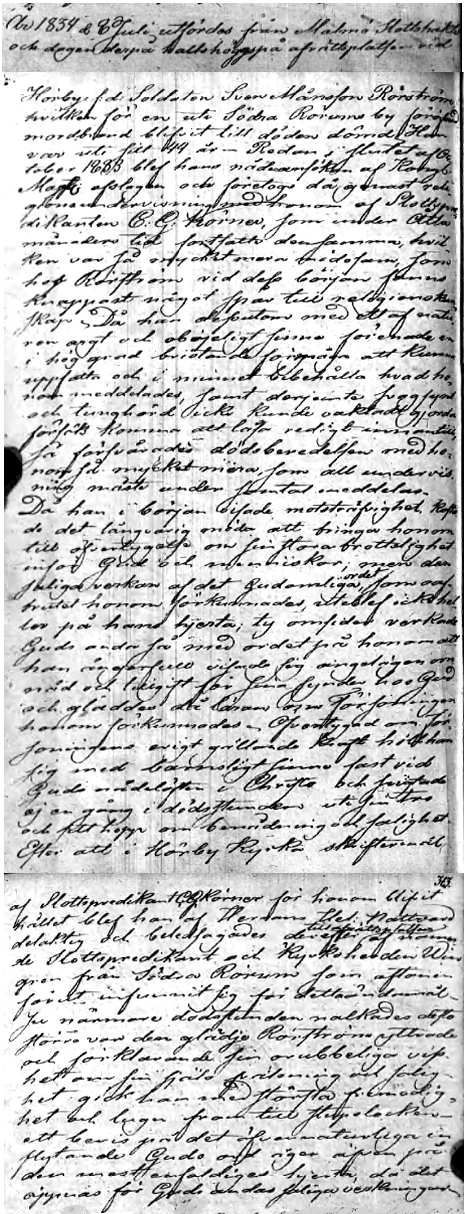 År 1834 d 8 Juli utfördes från Malmö Slottshäkte
och dagen derpå halshöggs på afrättsplatsen vid
Hörby f.d. Soldaten Sven Månsson Rörström,
hvilken för en uti Södra Rörums by föröfvad
mordbrand blifvit till döden dömd. Han
var uti sitt 44 år — Redan i slutet af Oc
tober 1833 blef hans nådeansökan af Kongl.
Majt. afslagen och företogs då genast reli
gionsundervisning med honom af Slottspre
dikanten C. G. Körner, som under åtta
månaders tid fortsatte densamma, hvil
ken var så mycket mera mödosam, som
hos Rörström vid dess början fanns
knappast något spår till religionskun
skap. Då han dessutom med ett af natu
ren argt och oböjeligt sinne förenade en
i hög grad bristande förmåga att kunna
uppfatta och i minnet bibehålla hvad ho
nom meddelades, samt derjemte
och tunghörd icke kunde
komma att läsa redigt innantill,
så försvårades dödsberedelsen med ho
nom så mycket mera, som all undervis
ning måste under samtal meddelas.
Då han i början visade motsträfvighet, kosta
de det långvarig möda att bringa honom
till öfvertygelse om sin stora brottslighet
inför Gud och menniskor; men den
saliga verkan af det Gudomliga ordet, som oaf
brutet honom förkunnades, uteblef icke hel
ler på hans hjerta; ty omsider verkade
Guds anda så med ordet på honom att
han ångerfull visade sig angelägen om
nåd och tillgift för sina synder hos Gud
och gladdes då läran om Försoningen
honom förkunnades. Öfvertygad om för
soningens evigt gällande kraft höll han
sig med barnsligt sinne fast vid
Guds nådelöften i Christo och
ej en gång i dödsstunden uti sin tro
och sitt hopp om benådning och salighet.
Efter att i Hörby Kyrka skriftermål
af Slottspredikant CG Körner för honom blifvit
hållet blef han af Herrans Hel. Nattvard
delaktig och beledsagades derefter till afrättsplatsen af nämn
de Slottspredikant och Kyrkoherden Win
gren från Södra Rörum som aftonen
förut infunnit sig för detta ändamål.
Ju närmare dödsstunden nalkades desto
större var den glädje Rörström yttrade
och förklarande sin orubbeliga viss
het om sin själs frälsning och salig
het gick han med största frimodig-
het och lugn fram till stupstocken —
ett bevis på det öfvernaturliga in
flytande Guds ord äger äfven på
den mest enfaldiges hjerta, då det
öppnas för Guds andas saliga verkningar.